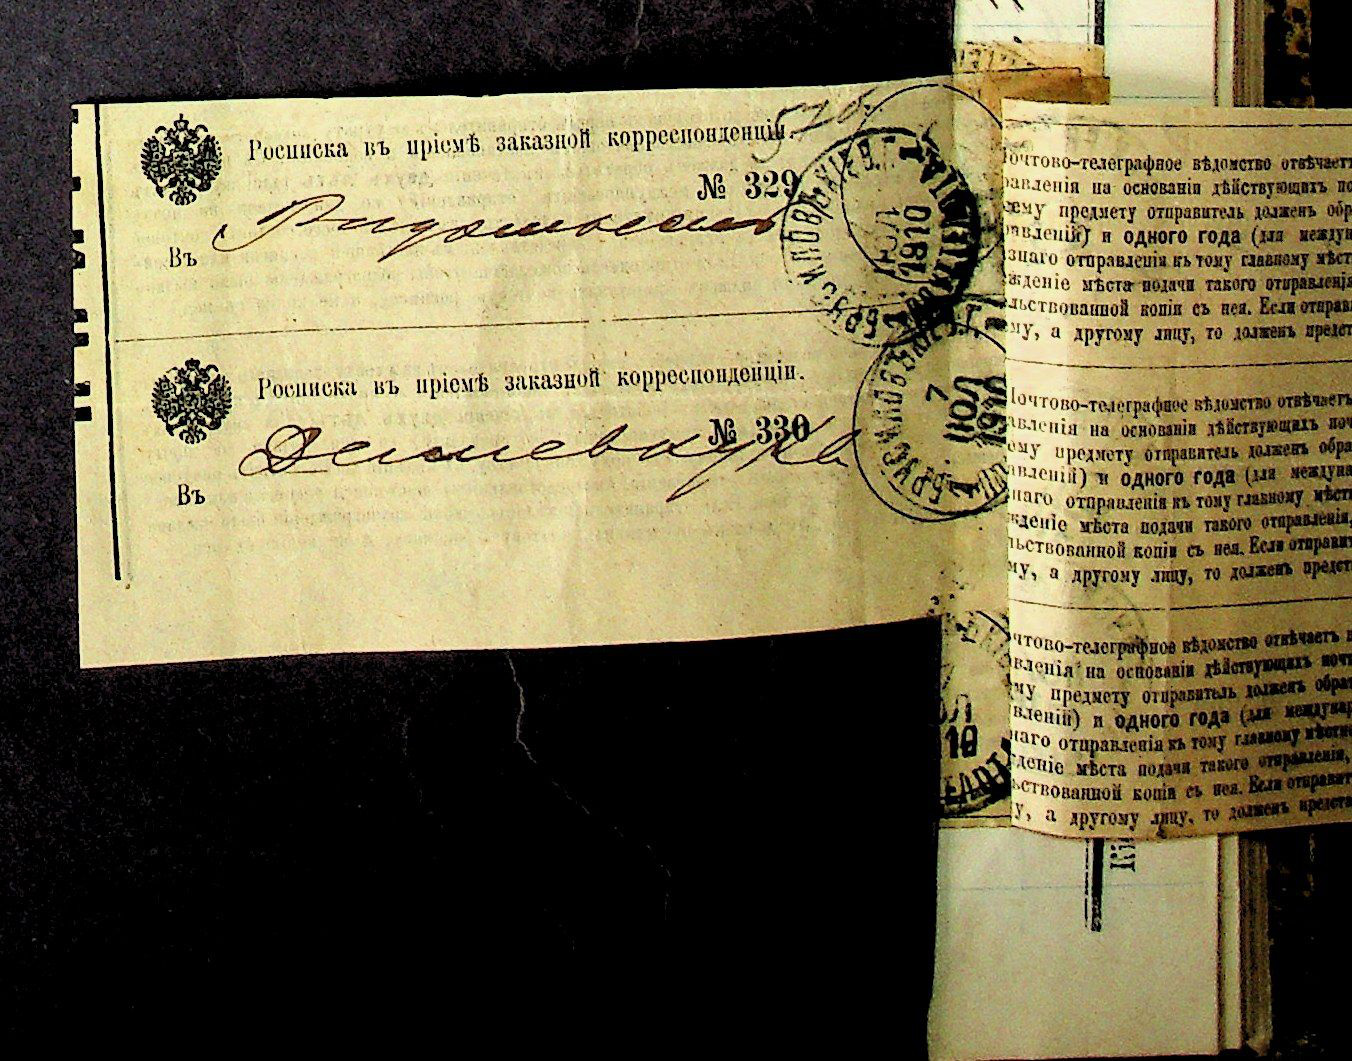 Росписка въ пріемѣ заказной корреспонденціи.
№ 329
Въ
БРУСИЛОВЪ КІЕВ. Г.
1910
Росписка въ пріемѣ заказной корреспонденціи.
№ 330
Въ
БРУСИЛОВЪ
7
ЮЛ
очтово-телеграфное вѣдомство отвѣчаетъ
равленія на основаніи дѣйствующихъ
ему предмету отправитель долженъ обр
авленій) и одного года (для междун
знаго отправленія къ тому главному мѣст
жденіе мѣста подачи такого отправленія
льствованной копіи съ нея. Если отправ
му, а другому лицу, то долженъ предст
Почтово-телеграфное вѣдомство отвѣчаетъ
авленія на основаніи дѣйствующихъ поч
ему предмету отправитель долженъ обра
авленій) и одного года (для междуна
наго отправленія къ тому главному мѣст
жденіе мѣста подачи такого отправленія,
льствованной копіи съ нея. Если отправит
му, а другому лицу, то долженъ предст
чтово-телеграфное вѣдомство отвѣчаетъ
вленія на основаніи дѣйствующихъ почт
му предмету отправитель долженъ обрат
вленій) и одного года (для междунар
наго отправленія къ тому главному мѣстн
деніе мѣста подачи такого отправленія,
ьствованной копіи съ нея. Если отправит
у, а другому лицу, то долженъ предста